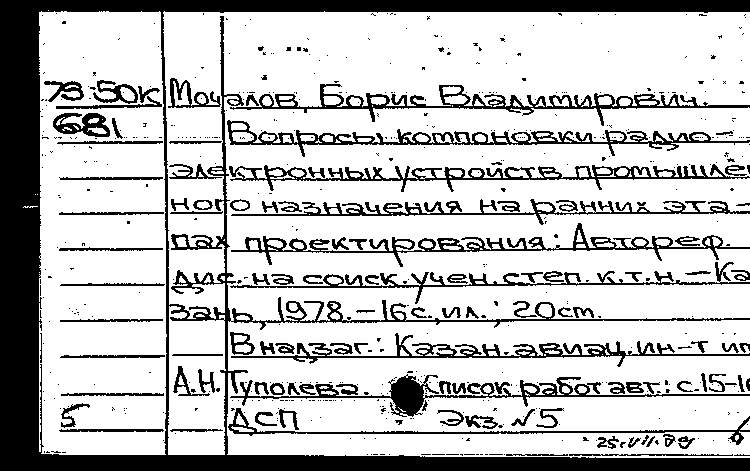 79-50к Мочалов, Борис Владимирович.
681 Вопросы компоновки радио-
электронных устройств промышлен
ного назначения на ранних эта-
пах проектирования: Автореф.
дис. на соиск. учен. степ. к.т.н. - Ка
зань, 1978. - 16с., ил.; 20см.
В надзаг.: Казан. авиац. ин-т им
А.Н. Туполева. Список работ авт.: с.15-16
5 ДСП Экз. №5